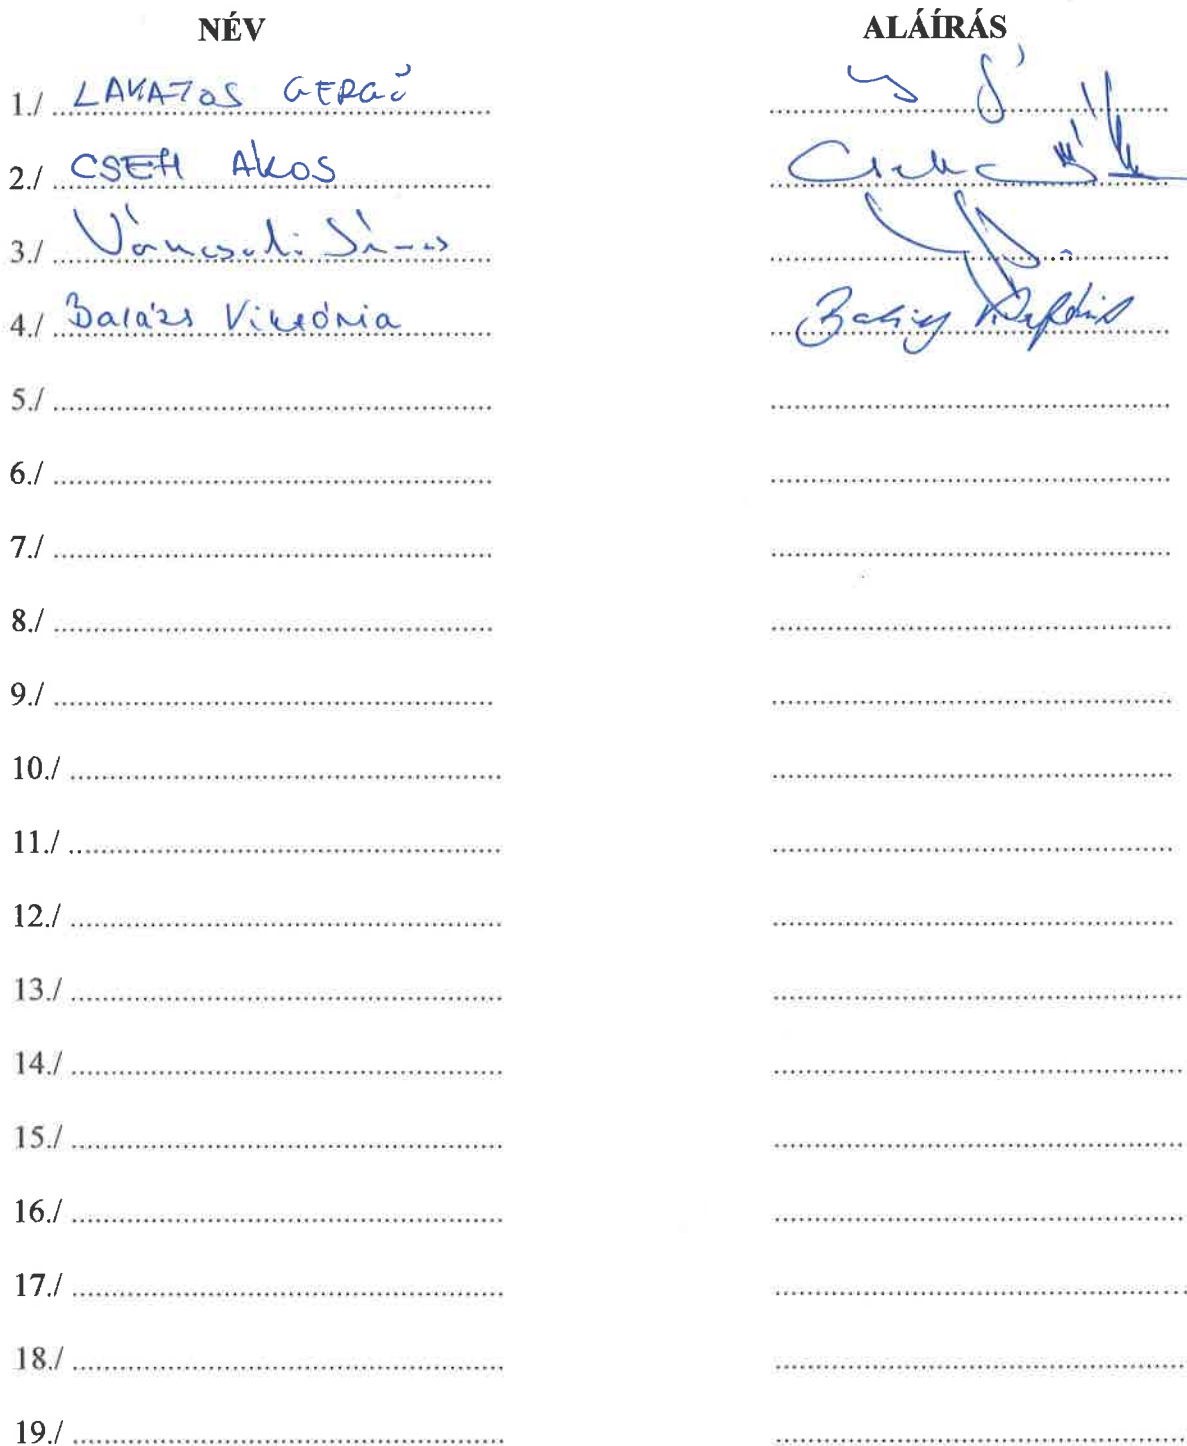 NÉV ALÁÍRÁS
1./ LAKATOS GERGŐ
2./ CSEH ÁKOS
3./ Váncsodi János
4./ Balázs Viktória Balázs Viktória
5./
6./
7./
8./
9./
10./
11./
12./
13./
14./
15./
16./
17./
18./
19./